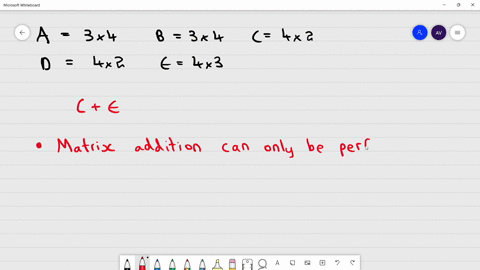 Microsoft Whiteboard
A = 3x4 B = 3x4 C = 4x2
AV
D = 4x2 E = 4x3
C + E
• Matrix addition can only be perf